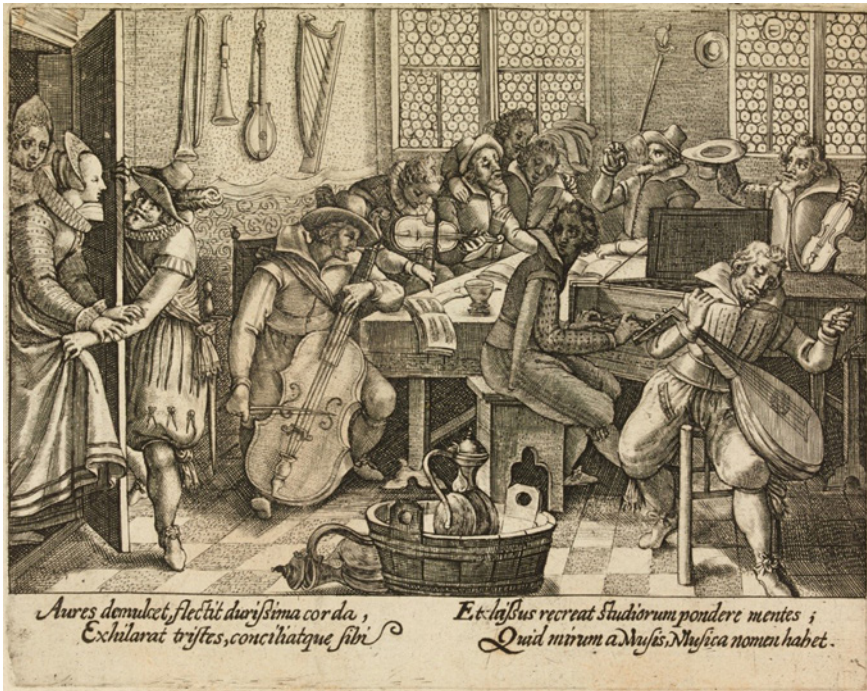 Aures demulcet, flectit durißima corda,
Exhilarat tristes, conciliatque sibi
Et laißus recreat studiorum pondere mentes;
Quid mirum a Musis, Musica nomen habet.